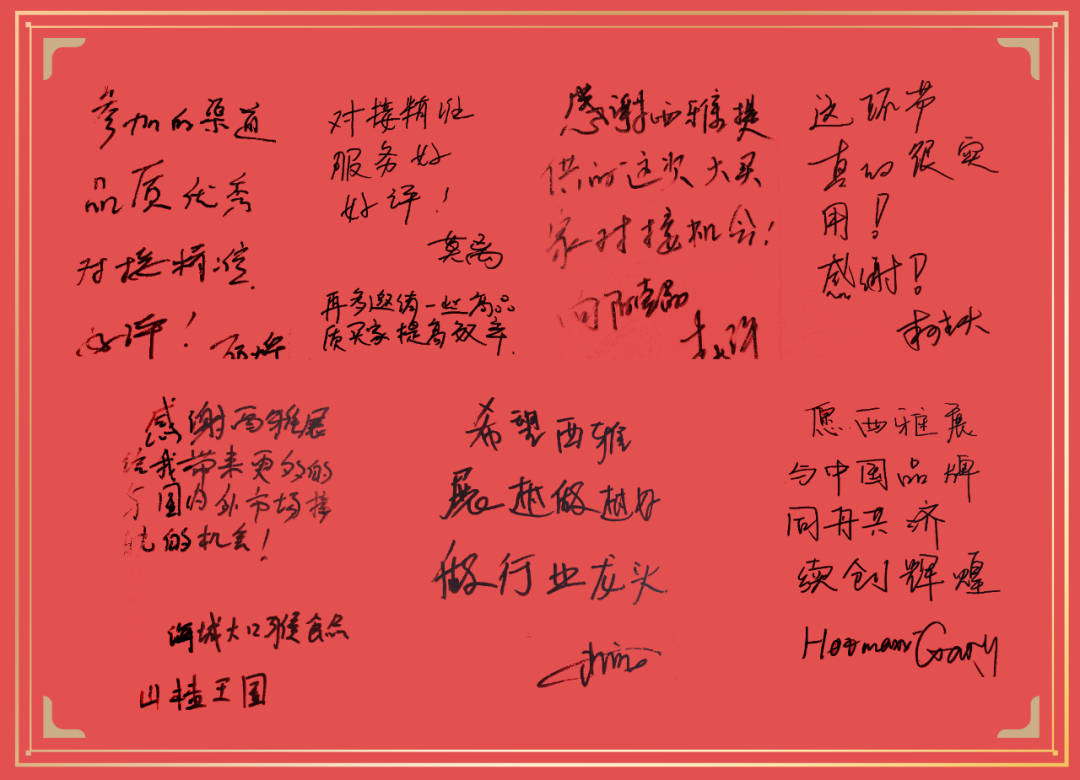 参加的渠道
品质优秀
对接精准
好评！
对接精准
服务好
好评！
莫离
再多邀请一些高品
质买家提高效率.
感谢西雅提
供的这次大买
家对接机会！
这环节
真的很实
用！
感谢！
感谢西雅展
给我带来更多的
与国内外市场接
的机会！
海城大口猴食品
山楂王国
希望西雅
展越做越好
做行业龙头
愿西雅展
与中国品牌
同舟共济
续创辉煌
Herman Gary